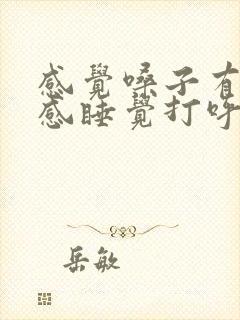 感覺嗓子有
感睡覺打呼
岳敏